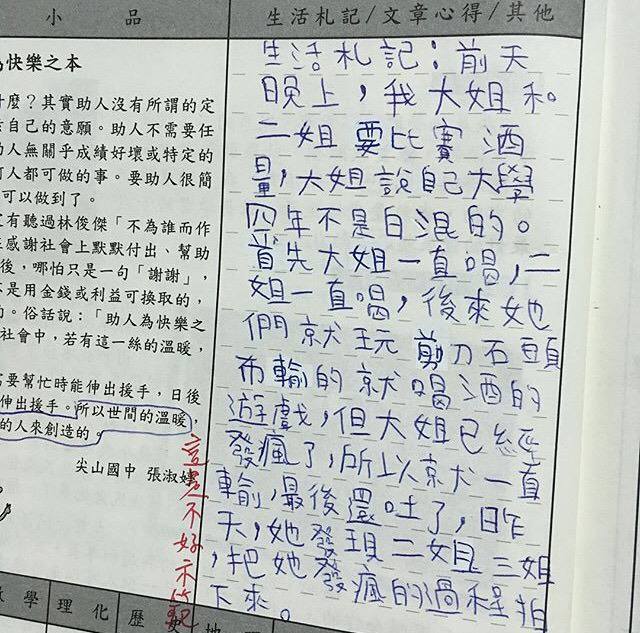 小品
生活札記/文章心得/其他
為快樂之本
什麼？其實助人沒有所謂的定
自己的意願。助人不需要任
人無關乎成績好壞或特定的
人都可做的事。要助人很簡
可以做到了。
有聽過林俊傑「不為誰而作
感謝社會上默默付出、幫助
後，哪怕只是一句「謝謝」，
是用金錢或利益可換取的，
。俗話說：「助人為快樂之
社會中，若有這一絲的溫暖，
需要幫忙時能伸出援手，日後
伸出援手。所以世間的溫暖，
的人來創造的。
尖山國中 張淑
生活札記：前天
晚上，我大姐和
二姐要比賽酒
量，大姐說自己大學
四年不是白混的。
首先大姐一直喝，二
姐一直喝，後來她
們就玩剪刀石頭
布輪的就喝酒的
遊戲，但大姐已經
發瘋了，所以就一直
輸，最後還吐了，昨
天，她發現二姐三姐
，把她發瘋的過程拍
下來。
學 理化 歷史 地